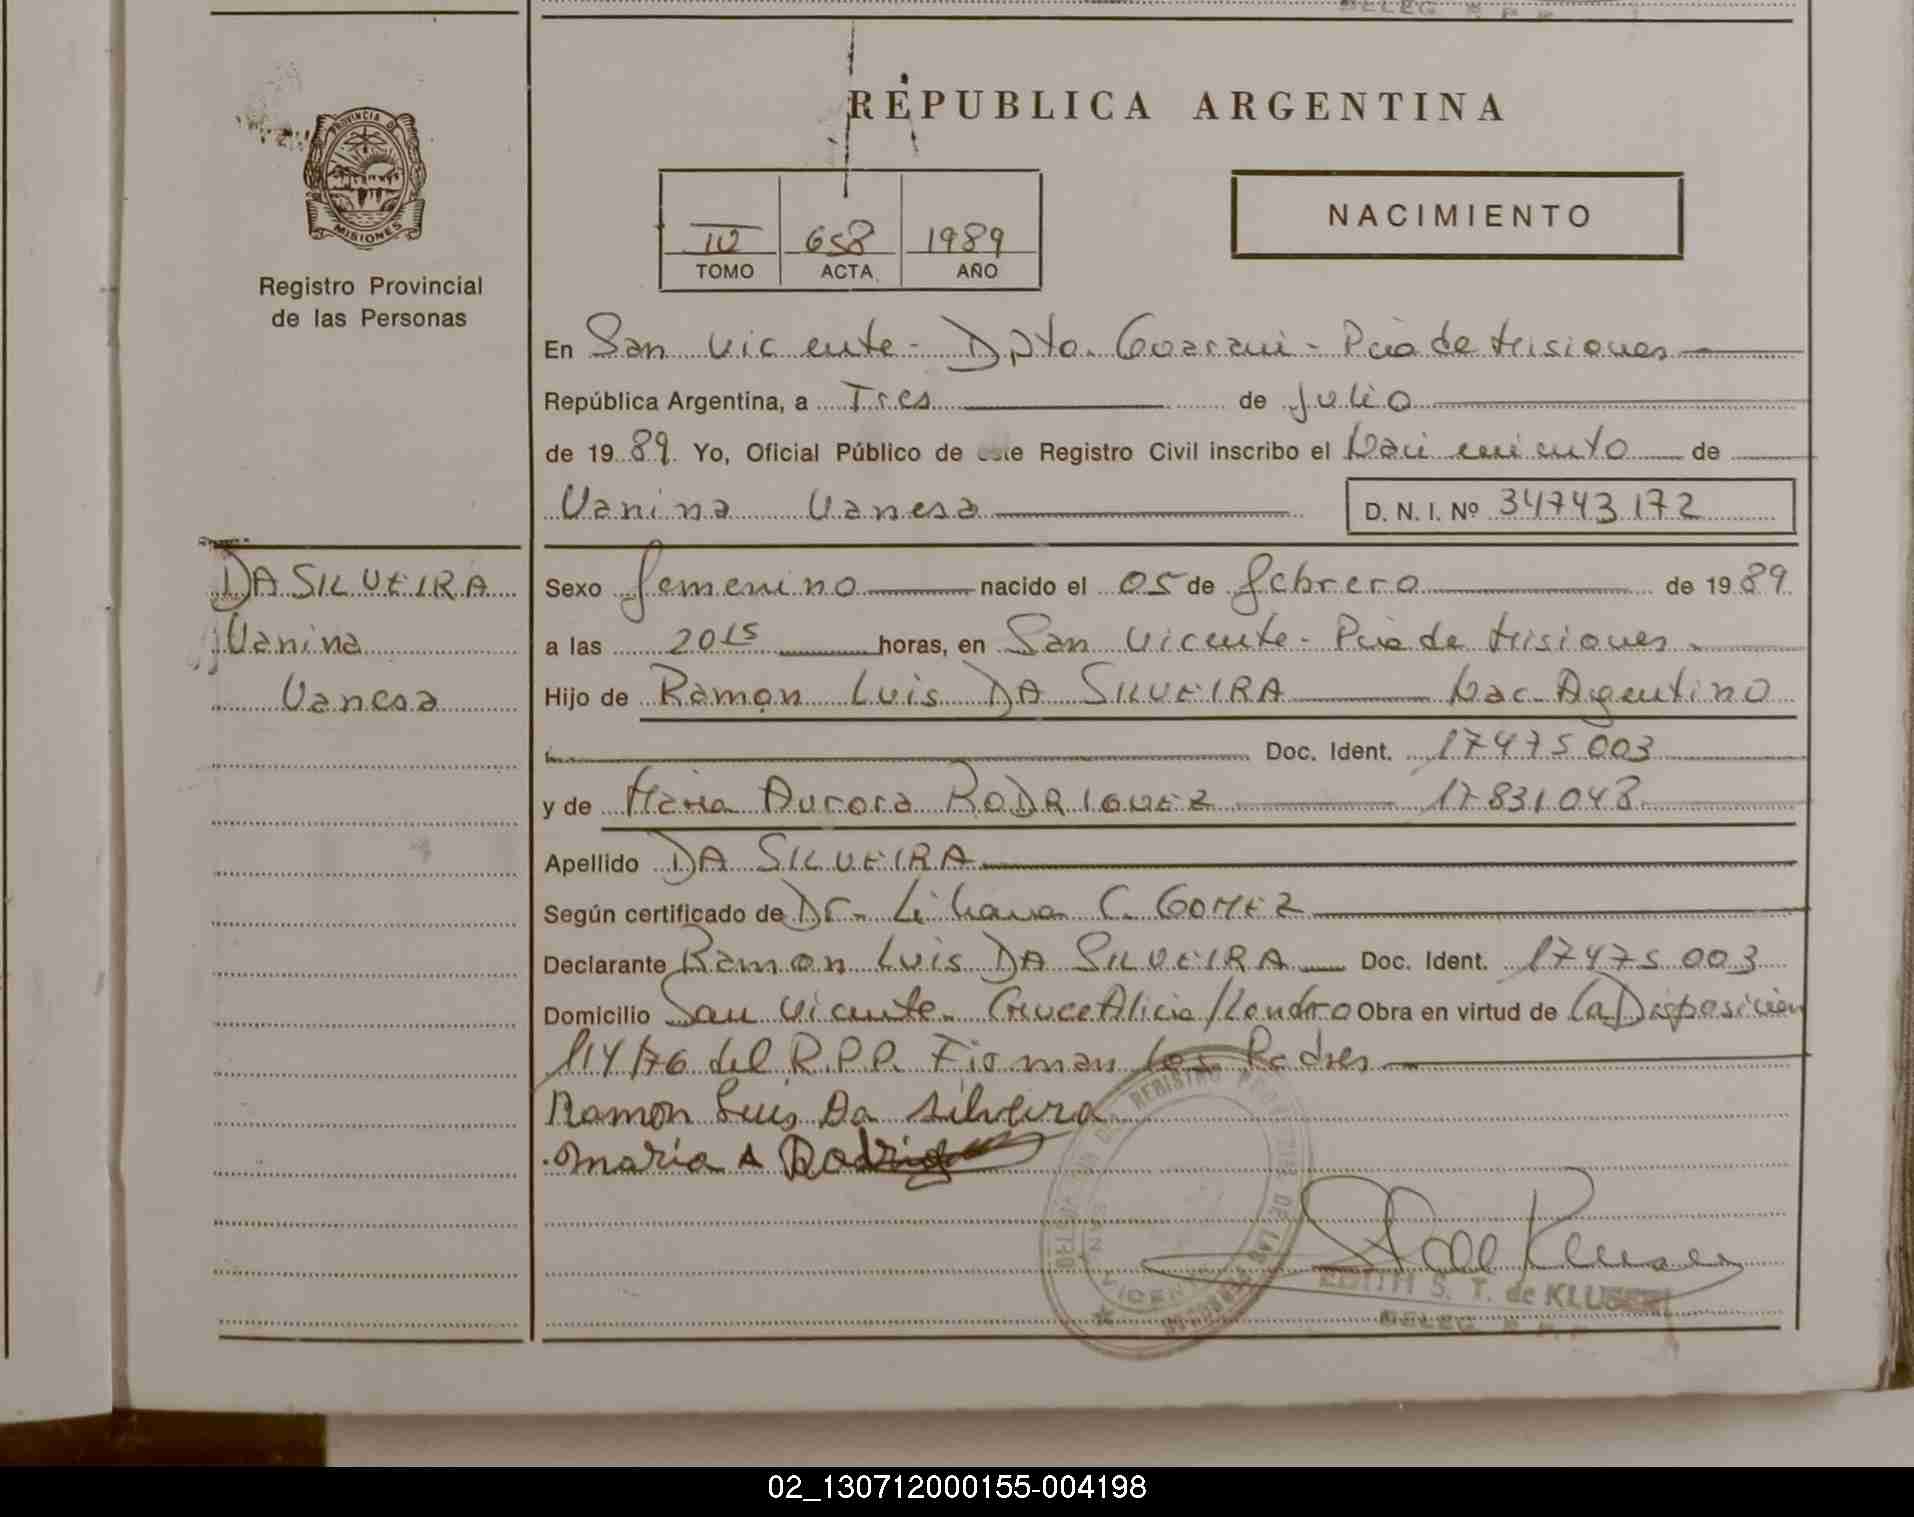 PROVINCIA DE
MISIONES
Registro Provincial
de las Personas
DA SILVEIRA
Vanina
Vanesa
REPUBLICA ARGENTINA
658 1989
TOMO ACTA AÑO
NACIMIENTO
En San Vicente - Dpto. Guarani - Pcia de Misiones
República Argentina, a Tres de Julio
de 1989. Yo, Oficial Público de este Registro Civil inscribo el Nacimiento de
Vanina Vanesa D. N. I. Nº 34743172
Sexo femenino nacido el 05 de febrero de 1989
a las 20 15 horas, en San Vicente - Pcia de Misiones.
Hijo de Ramon Luis DA SILVEIRA Nac. Argentino
Doc. Ident. 17475003
y de Maria Aurora RODRIGUEZ 17831048
Apellido DA SILVEIRA
Según certificado de Dr. Liliana C. GOMEZ
Declarante Ramon Luis DA SILVEIRA Doc. Ident. 17475003
Domicilio San Vicente - Cruce Alicia/Londro Obra en virtud de la Disposicion
114/76 del R.P.P. Firman los Padres
Ramon Luis Da Silveira
maria A Rodrig
EDITH S. T. de KLUSER
DELEG. R. P. P.
02_130712000155-004198